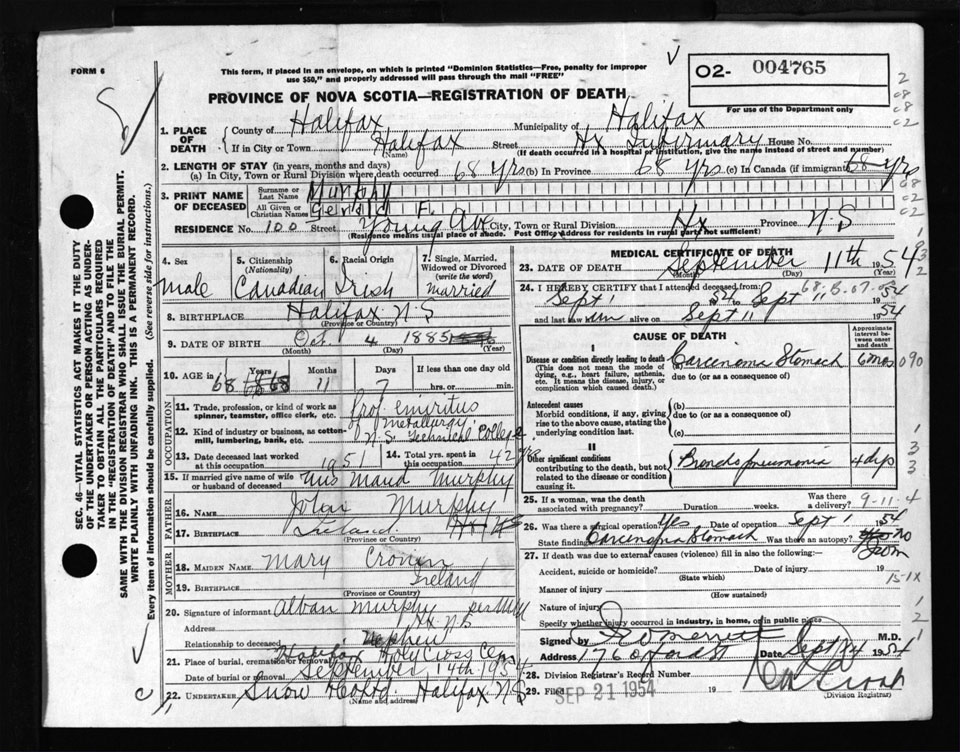 FORM 6
This form, if placed in an envelope, on which is printed "Dominion Statistics—Free, penalty for improper
use $50," and properly addressed will pass through the mail "FREE"
O2- 004765
For use of the Department only
PROVINCE OF NOVA SCOTIA—REGISTRATION OF DEATH
1. PLACE OF DEATH
County of Halifax Municipality of Halifax
If in City or Town Halifax Street Hx Infirmary House No.
(Name) (If death occurred in a hospital or institution, give the name instead of street and number)
2. LENGTH OF STAY (in years, months and days)
(a) In City, Town or Rural Division where death occurred 68 yrs (b) In Province 68 yrs (c) In Canada (if immigrant) 68 yrs
3. PRINT NAME OF DECEASED
Surname or Last Name Murphy
All Given or Christian Names Gerald F.
RESIDENCE No. 100 Street Young Ave City, Town or Rural Division Hx Province N.S
(Residence means usual place of abode. Post Office Address for residents in rural parts not sufficient)
4. Sex
male
5. Citizenship
(Nationality)
Canadian
6. Racial Origin
Irish
7. Single, Married, Widowed or Divorced
(write the word)
married
8. BIRTHPLACE Halifax N.S
(Province or Country)
9. DATE OF BIRTH Oct. 4 1885
(Month) (Day) (Year)
10. AGE in
Years Months Days If less than one day old
68 11 7 hrs. or min.
OCCUPATION
11. Trade, profession, or kind of work as spinner, teamster, office clerk, etc. Prof. emeritus
of Metallurgy
12. Kind of industry or business, as cotton-mill, lumbering, bank, etc. N.S. Technical College
13. Date deceased last worked at this occupation 1951
14. Total yrs. spent in this occupation 42 yrs
15. If married give name of wife or husband of deceased Mrs Maud Murphy
FATHER
16. Name John Murphy
17. BIRTHPLACE Ireland
(Province or Country)
MOTHER
18. MAIDEN NAME Mary Cronin
19. BIRTHPLACE Ireland
(Province or Country)
20. Signature of informant Alban Murphy
Address Hx N.S
Relationship to deceased Nephew
21. Place of burial, cremation or removal Halifax Holy Cross Cem
Date of burial or removal September 14th 1954
22. UNDERTAKER Snow Halifax N.S
(Name and address)
MEDICAL CERTIFICATE OF DEATH
23. DATE OF DEATH September 11th 1954
(Month) (Day)
24. I HEREBY CERTIFY that I attended deceased from:
Sept 1 54 to Sept 11 1954
and last saw him alive on Sept 11 1954
CAUSE OF DEATH
Approximate interval between onset and death
I
Disease or condition directly leading to death
(This does not mean the mode of dying, e.g., heart failure, asthenia, etc. It means the disease, injury, or complication which caused death.)
Carcinoma Stomach 6 mos
due to (or as a consequence of)
Antecedent causes
Morbid conditions, if any, giving rise to the above cause, stating the underlying condition last.
(b)
due to (or as a consequence of)
(c)
II
Other significant conditions
contributing to the death, but not related to the disease or condition causing it.
Bronchopneumonia 4 dys
25. If a woman, was the death associated with pregnancy? Duration weeks. Was there a delivery?
26. Was there a surgical operation? Yes Date of operation Sept 1 1954
State findings Carcinoma Stomach Was there an autopsy? no
27. If death was due to external causes (violence) fill in also the following:—
Accident, suicide or homicide? Date of injury 19
(State which)
Manner of injury
(How sustained)
Nature of injury
Specify whether injury occurred in industry, in home, or in public place
Signed by Merritt M.D.
Address 176 Oxford St Date Sept 14 1954
28. Division Registrar's Record No.
29. Filed SEP 21 1954 19
(Division Registrar)
SEC. 46—VITAL STATISTICS ACT MAKES IT THE DUTY
OF THE UNDERTAKER OR PERSON ACTING AS UNDER-
TAKER TO OBTAIN ALL THE PARTICULARS REQUIRED
IN THE "REGISTRATION OF DEATH" AND TO FILE THE
SAME WITH THE DIVISION REGISTRAR WHO SHALL ISSUE THE BURIAL PERMIT.
WRITE PLAINLY WITH UNFADING INK. THIS IS A PERMANENT RECORD.
Every item of information should be carefully supplied. (See reverse side for instructions.)